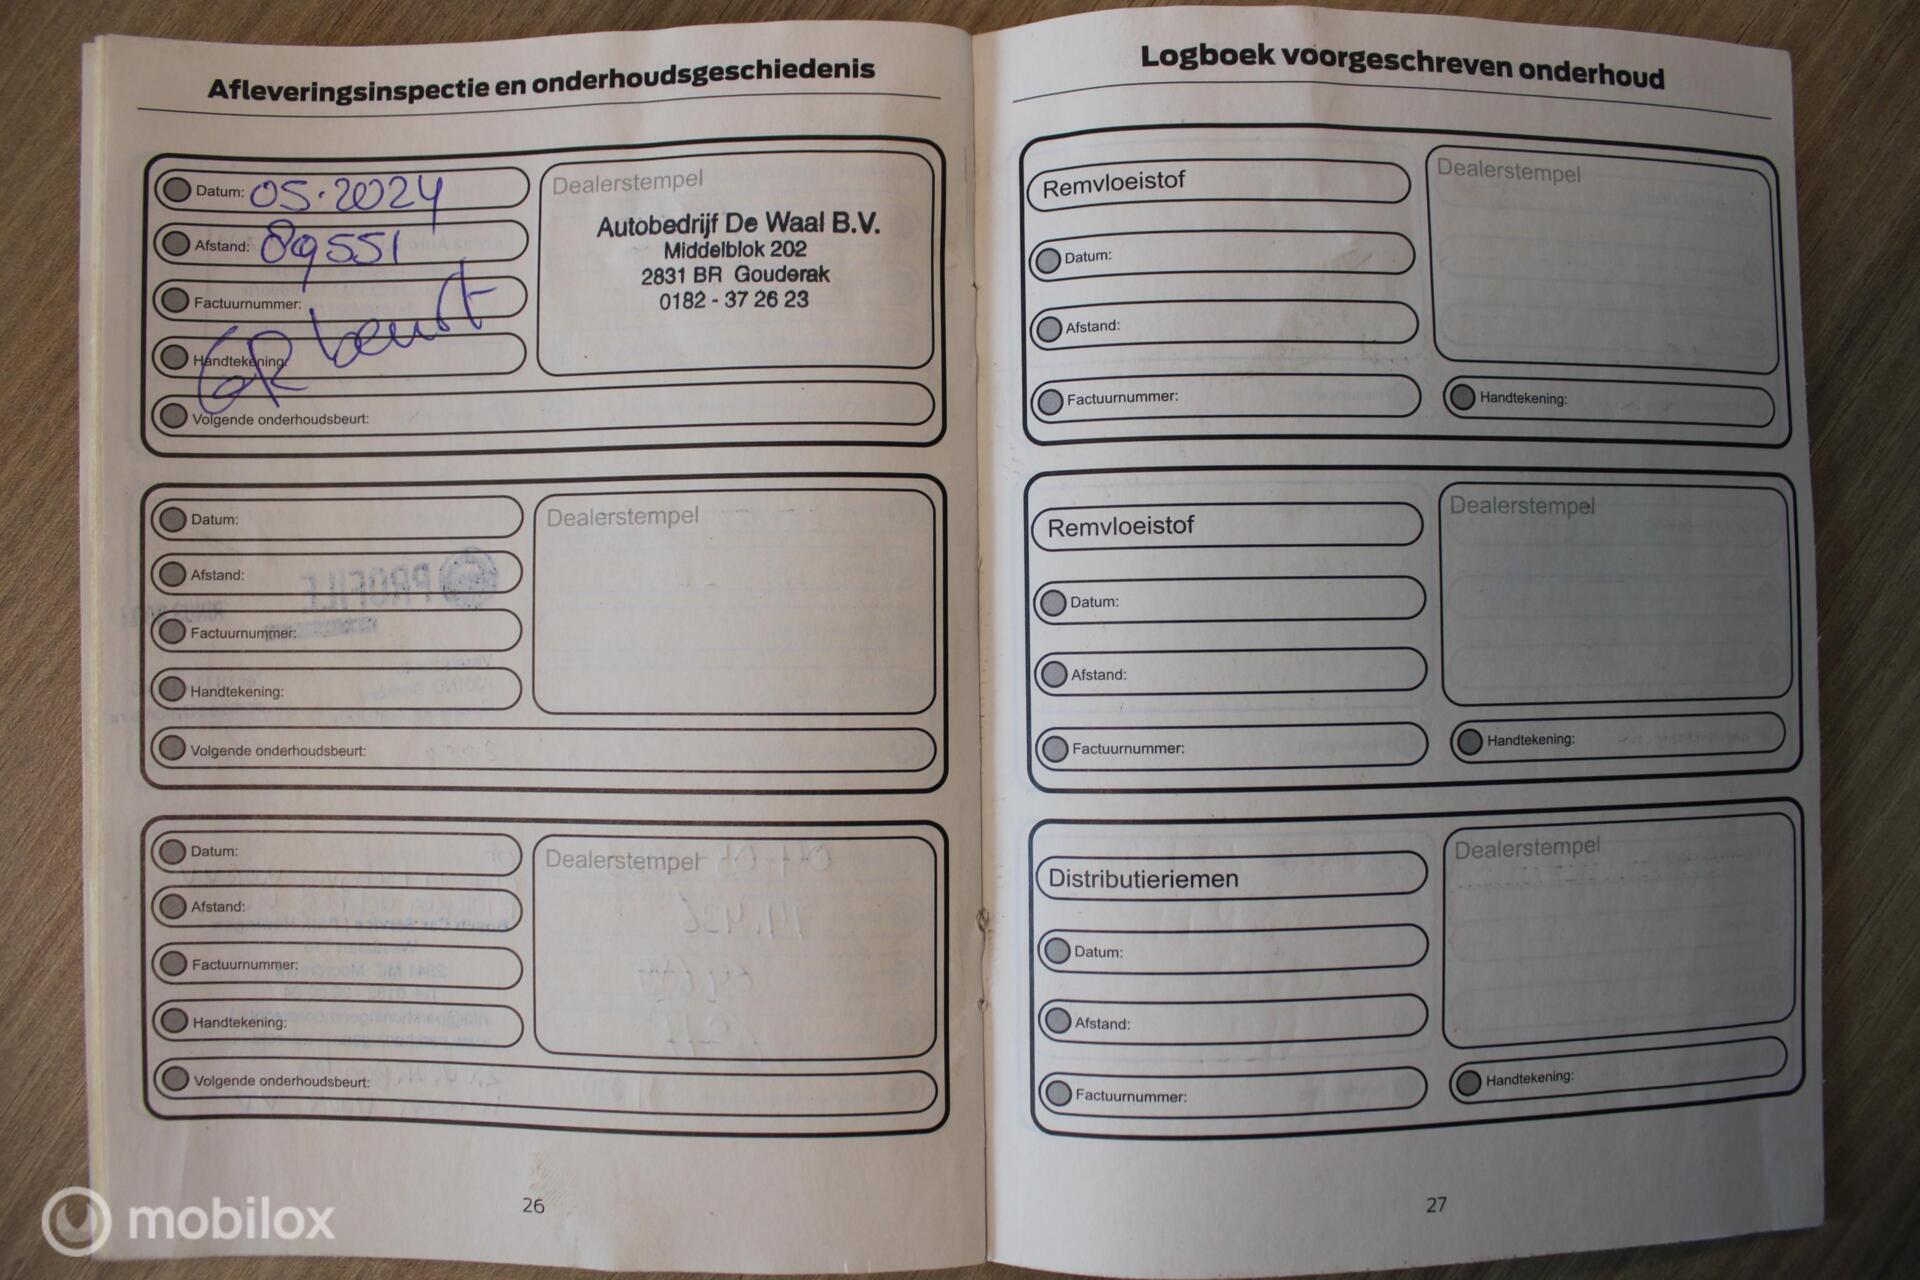 Afleveringsinspectie en onderhoudsgeschiedenis
Datum: 05.2024
Afstand: 89551
Factuurnummer:
GR beurt
Handtekening:
Volgende onderhoudsbeurt:
Dealerstempel
Autobedrijf De Waal B.V.
Middelblok 202
2831 BR Gouderak
0182 - 37 26 23
Datum:
Afstand:
Factuurnummer:
Handtekening:
Volgende onderhoudsbeurt:
Dealerstempel
PROFILE
Datum:
Afstand:
Factuurnummer:
Handtekening:
Volgende onderhoudsbeurt:
Dealerstempel
26
Logboek voorgeschreven onderhoud
Remvloeistof
Datum:
Afstand:
Factuurnummer:
Dealerstempel
Handtekening:
Remvloeistof
Datum:
Afstand:
Factuurnummer:
Dealerstempel
Handtekening:
Distributieriemen
Datum:
Afstand:
Factuurnummer:
Dealerstempel
Handtekening:
27
mobilox